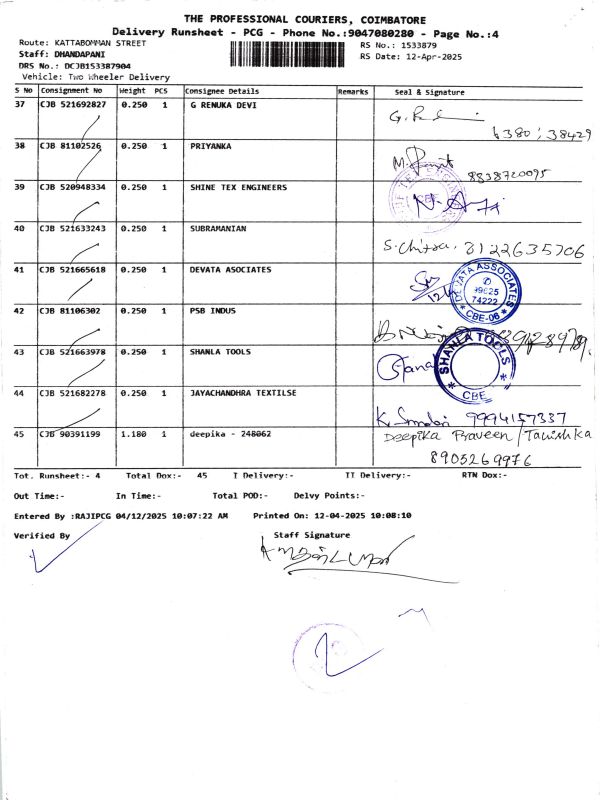 THE PROFESSIONAL COURIERS, COIMBATORE
Delivery Runsheet - PCG - Phone No.:9047080280 - Page No.:4
Route: KATTABOMMAN STREET
RS No.: 1533879
Staff: DHANDAPANI
RS Date: 12-Apr-2025
DRS No.: DCJB153387904
Vehicle: Two Wheeler Delivery
S No Consignment No Weight PCS Consignee Details Remarks Seal & Signature
37 CJB 521692827 0.250 1 G RENUKA DEVI
38 CJB 81102526 0.250 1 PRIYANKA
8838720095
39 CJB 520948334 0.250 1 SHINE TEX ENGINEERS
40 CJB 521633243 0.250 1 SUBRAMANIAN
S. Chitra. 8122635706
41 CJB 521665618 0.250 1 DEVATA ASOCIATES
DEVATA ASSOCIATES
99625
74222
CBE-06
42 CJB 81106302 0.250 1 PSB INDUS
43 CJB 521663978 0.250 1 SHANLA TOOLS
SHANLA TOOLS
CBE
44 CJB 521682278 0.250 1 JAYACHANDHRA TEXTILSE
9994157337
45 CJB 90391199 1.180 1 deepika - 248062
Deepika Praveen / Tanishka
8903269976
Tot. Runsheet:- 4 Total Dox:- 45 I Delivery:- II Delivery:- RTN Dox:-
Out Time:- In Time:- Total POD:- Delvy Points:-
Entered By :RAJIPCG 04/12/2025 10:07:22 AM Printed On: 12-04-2025 10:08:10
Verified By Staff Signature